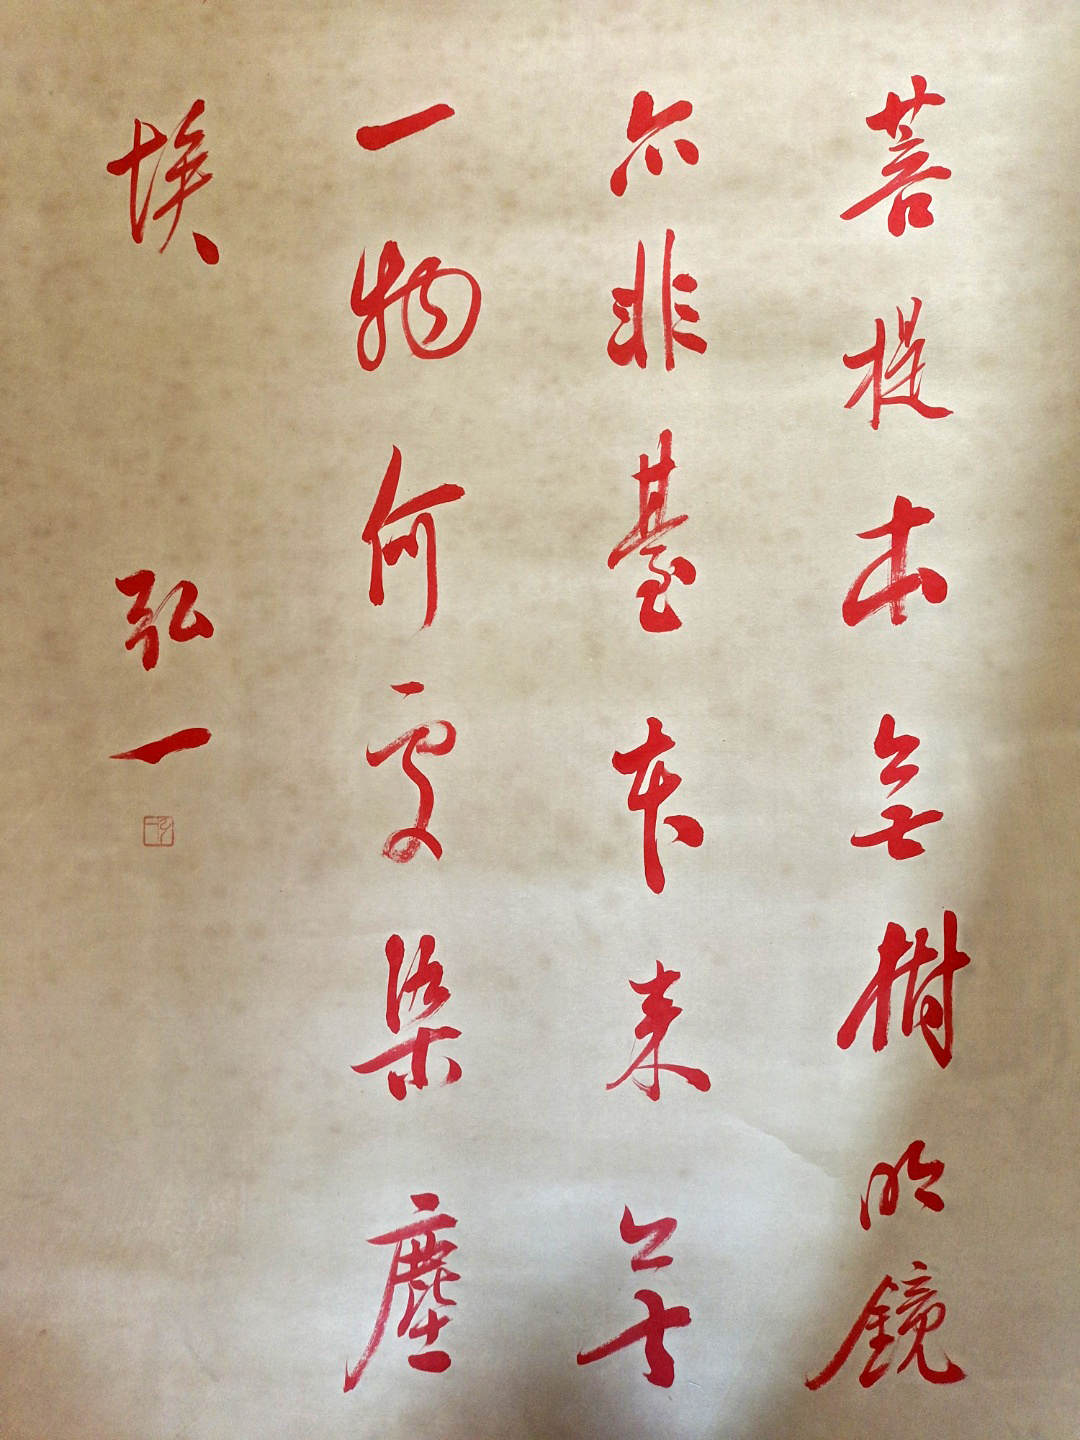 菩提本無樹明鏡
亦非臺本來無
一物何處染塵
埃
弘一